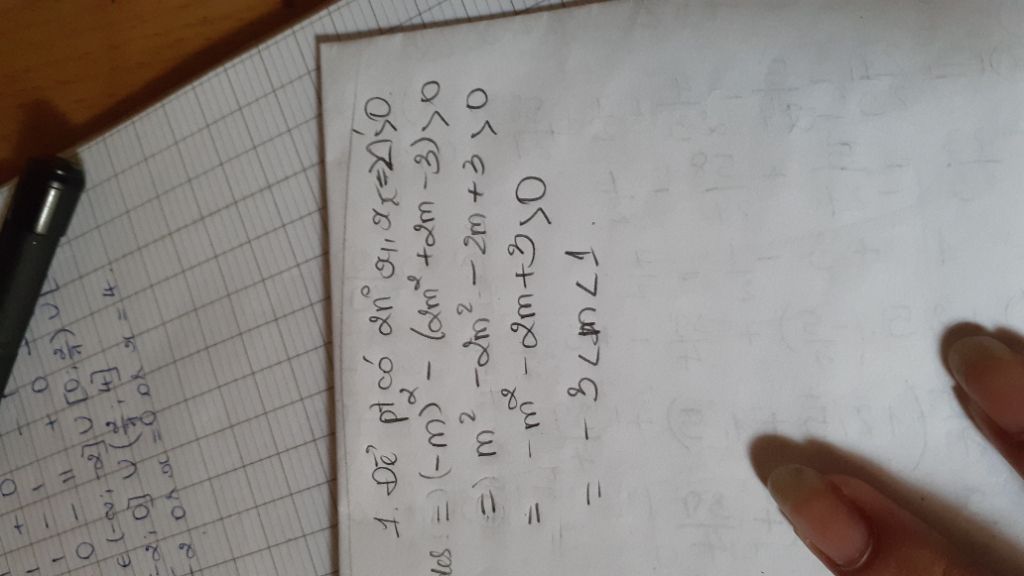 1. Để pt có 2n° x₁, x₂ => Δ' > 0.
=> (-m)² - (2m² + 2m - 3) > 0
=> m² - 2m² - 2m + 3 > 0
= -m² - 2m + 3 > 0
= -3 < m < 1.
1 + 0
1 - 1 + 0
0 - 11
∈ (-∞, -2] ∪ [0, )∪
-2, 0] ∪ ( , 4]
-2 or x = 0 or x = 4